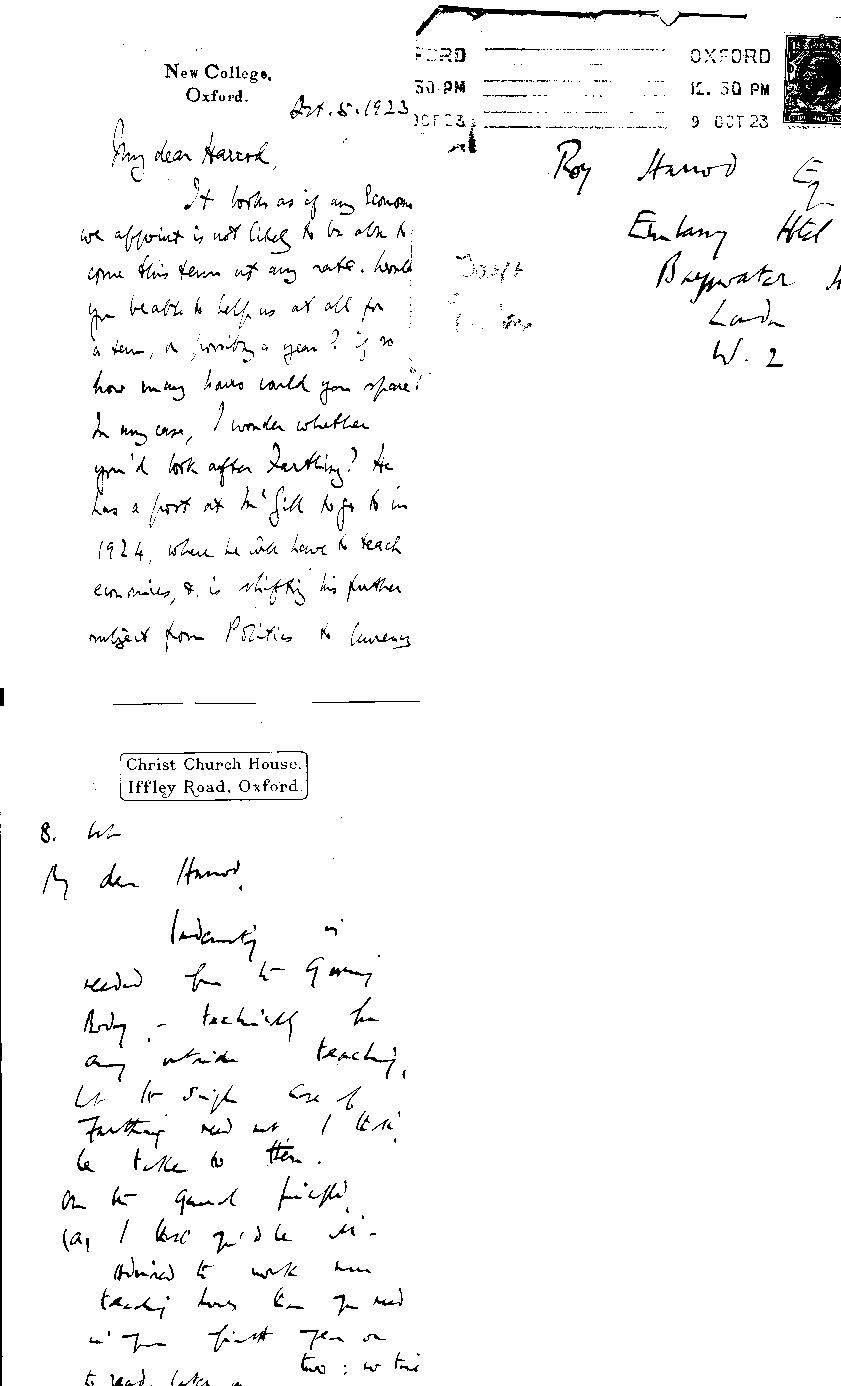 New College,
Oxford.
Oct. 5. 1923
My dear Harrod,
It looks as if any Econom
we appoint is not likely to be able to
come this term at any rate. Would
you be able to help us at all for
a term, or possibly a year? If so
how many hours could you spare?
In any case, I wonder whether
you'd look after Farthing? He
has a post at McGill to go to in
1924, where he will have to teach
economics, & is shifting his further
subject from Politics to Currency
FORD OXFORD
30 PM 12. 30 PM
OCT 23 9 OCT 23
Roy Harrod Esq
Embassy Hotel
Bayswater
London
W. 2
Christ Church House,
Iffley Road, Oxford.
8. Oct
My dear Harrod,
is
needed from the Governing
Body, – technically for
any outside teaching,
but the single case of
Farthing need not I think
be taken to them.
On the general principle,
(a) I think you'd be ill-
advised to work more
teaching hours than you need
in your first year or
to read, later two : no time